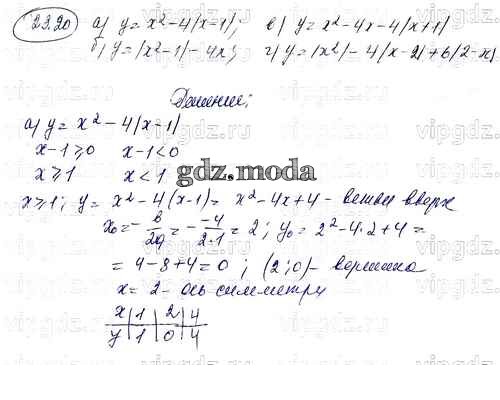 23.20 а) y = x² - 4|x-1|; в) y = x² - 4x - 4|x+1|
б) y = |x²-1| - 4x; г) y = |x²| - 4|x-2| + 6|2-x|
Решение:
а) y = x² - 4|x-1|
x-1≥0 x-1<0
x≥1 x<1
gdz.moda
x≥1; y = x² - 4(x-1) = x² - 4x + 4 - ветви вверх
x₀ = - в/2a = - -4/2·1 = 2; y₀ = 2² - 4·2 + 4 =
= 4 - 8 + 4 = 0; (2;0) - вершина
x = 2 - ось симметри
x | 1 | 2 | 4
y | 1 | 0 | 4
vipgdz.ru